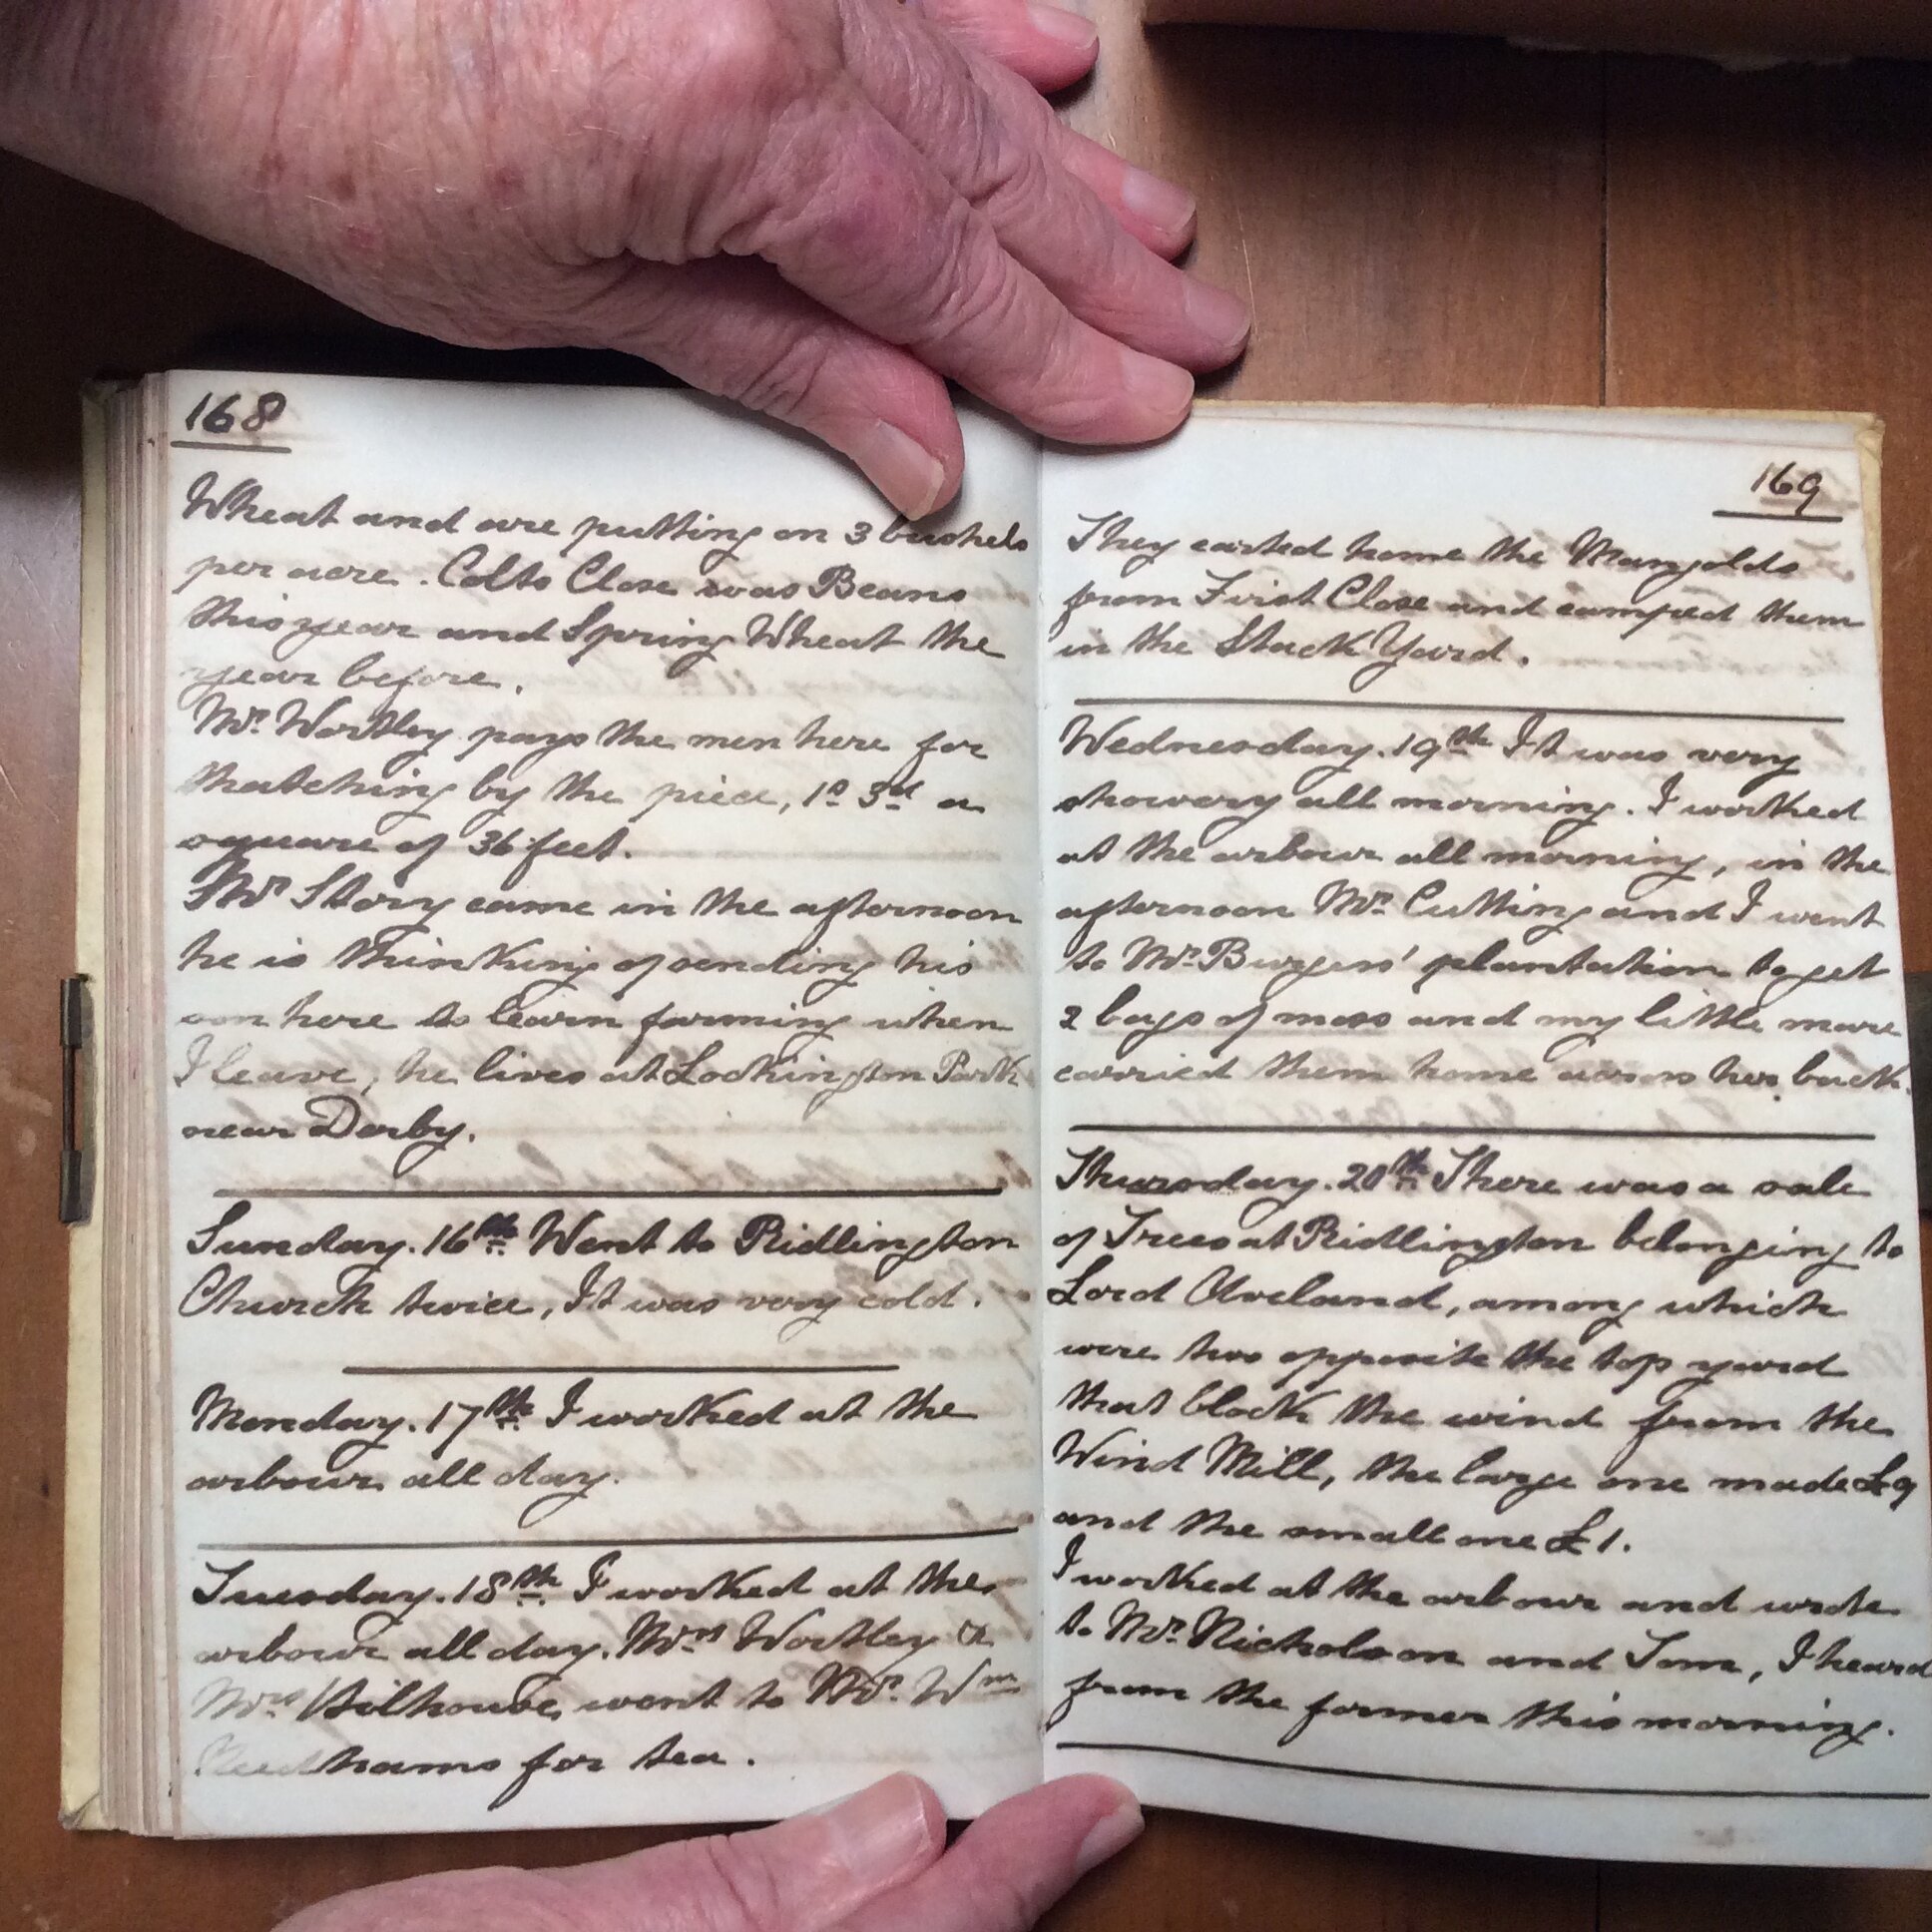 168
Wheat and are putting on 3 bushels
per acre. Colts Close was Beans
this year and Spring Wheat the
year before.
Mr. Wortley pays the men here for
thatching by the piece, 1s 3d a
square of 36 feet.
Mr Story came in the afternoon
he is thinking of sending his
son here to learn farming when
I leave, he lives at Lockington Park
near Derby.
Sunday. 16th Went to Ridlington
Church twice, It was very cold.
Monday. 17th I worked at the
arbour all day.
Tuesday. 18th I worked at the
arbour all day. Mrs Wortley &
Mrs Hilhouse went to Mr. Wm
for tea.
169
They carted home the Mangolds
from First Close and camped them
in the Stack Yard.
Wednesday. 19th It was very
showery all morning. I worked
at the arbour all morning, in the
afternoon Mr. Cutting and I went
to Mr. Burgess' plantation to get
2 bags of moss and my little mare
carried them home across her back.
Thursday. 20th There was a sale
of Trees at Ridlington belonging to
Lord Aveland, among which
were two opposite the top yard
that block the wind from the
Wind Mill, the large one made £9
and the small one £1.
I worked at the arbour and wrote
to Mr. Nicholson and Tom, I heard
from the former this morning.